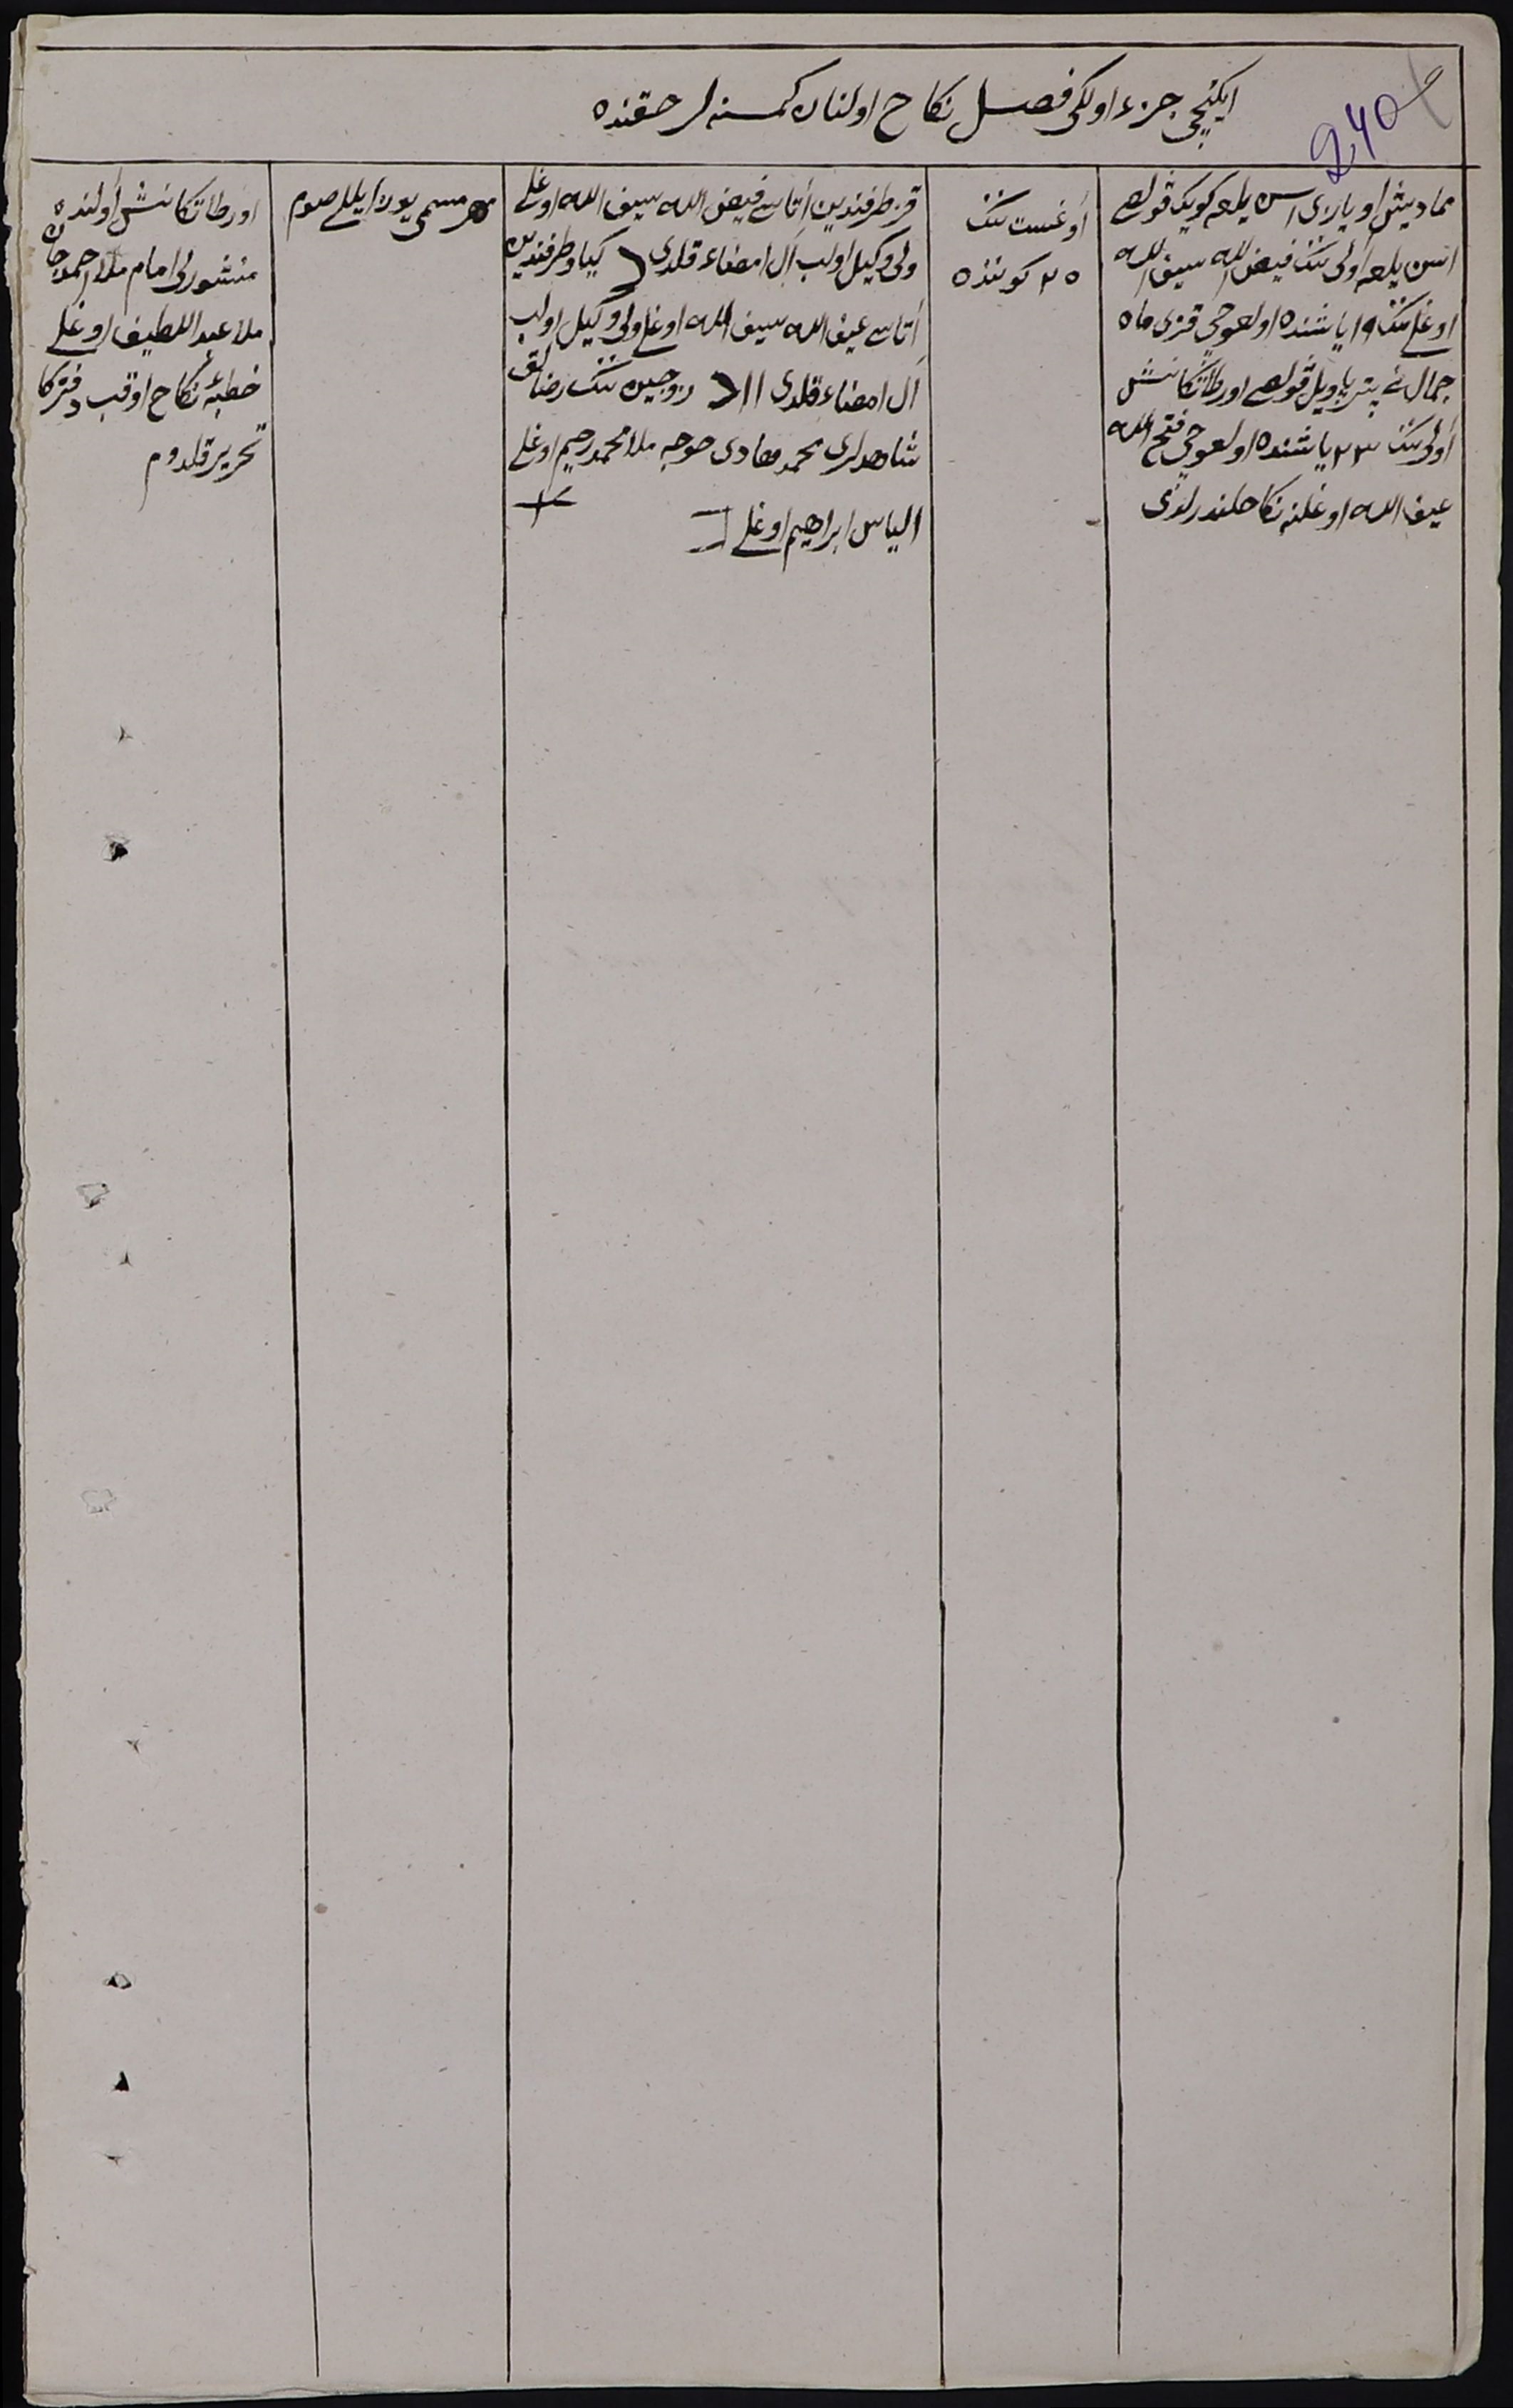 ایکنچی جزء اولکی فصل نکاح اولنان کمسنه لر حقنده
240
مادیش اویازی اسن یلعه کویک قولی
اسن یلعه اولی ننک فیض الله سیف الله
اوغلی ننک ۱۹ یاشنده اولغوجی قزی ماه
جمال نی اورطا تکانش
اولی ننک ۲۳ یاشنده اولغوجی فتح الله
عیف الله اوغلنه نکاحلندرلدی
اوغست ننک
۲۵ کوننده
قز طرفندین اتاسی فیض الله سیف الله اوغلی
ولی وکیل اولب ال امضاء قلدی کیاو طرفندین
اتاسی عیف الله سیف الله اوغلی ولی وکیل اولب
ال امضاء قلدی ااا زوجین ننک رضالق
شاهدلری محمد هادی خوجه ملا محمد رحیم اوغلی
الیاس ابراهیم اوغلی
مهر مسمی یوز ایللی صوم
اورطا تکانش اولنده
منشورلی امام ملا احمد جان
ملا عبد اللطیف اوغلی
خطبۀ نکاح اوقب دفترکا
تحریر قلدوم